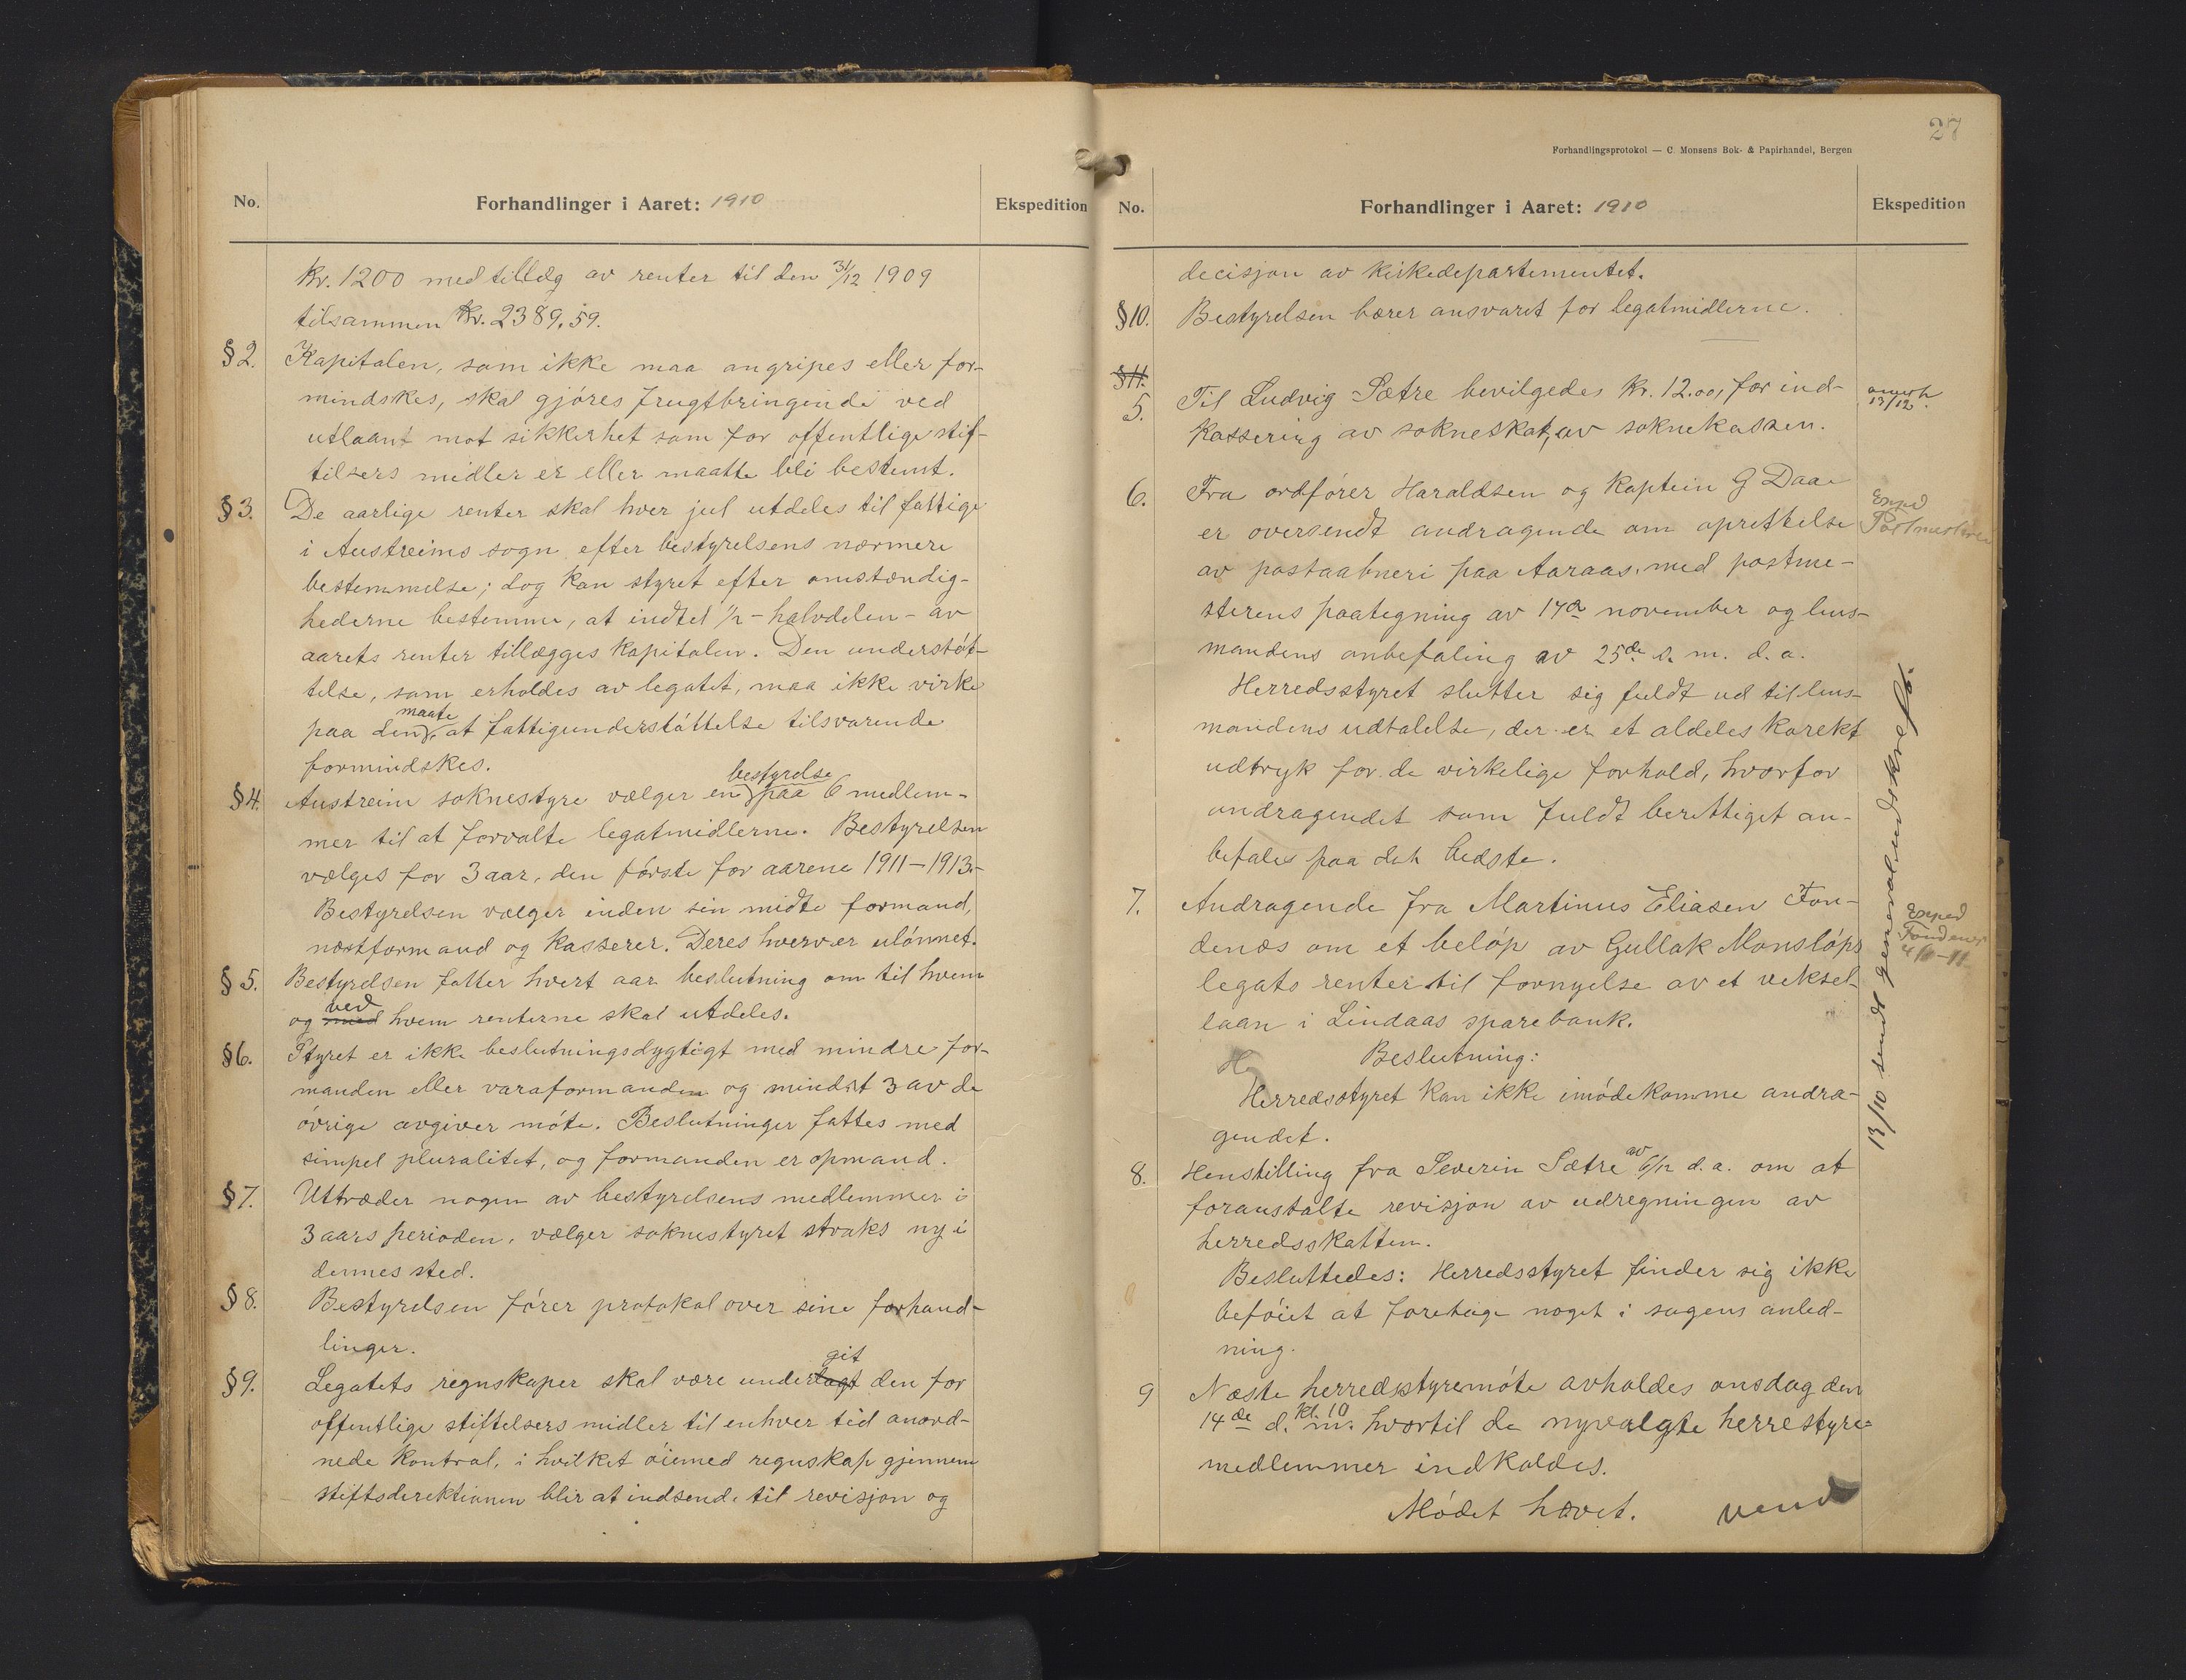 No.
Forhandlinger i Aaret: 1910
Ekspedition
Kr. 1200 med tillæg av renter til den 31/12 1909
tilsammen Kr. 2389.59.
§ 2. Kapitalen, som ikke maa angripes eller for-
mindskes, skal gjøres frugtbringende ved
utlaant mot sikkerhet som for offentlige stif-
tilsers midler er eller maatte bli bestemt.
§ 3. De aarlige renter skal hver jul utdeles til fattige
i Austreims sogn efter bestyrelsens nærmere
bestemmelse; dog kan styret efter omstændig-
hederne bestemme, at indtil 1/2 - halvdelen - av
aarets renter tillægges kapitalen. Den understøt-
telse, som erholdes av legatet, maa ikke virke
paa den maate, at fattigunderstøttelse tilsvarende
formindskes.
§ 4. Austreim soknestyre vælger en bestyrelse paa 6 medlem-
mer til at forvalte legatmidlerne. Bestyrelsen
vælges for 3 aar, den første for aarene 1911-1913.-
Bestyrelsen vælger inden sin midte formand,
næstformand og kasserer. Deres hverv er ulønnet.
§ 5. Bestyrelsen fatter hvert aar beslutning om til hvem
og med ved hvem renterne skal utdeles.
§ 6. Styret er ikke beslutningsdygtigt med mindre for-
manden eller varaformanden og mindst 3 av de
øvrige avgiver møte. Beslutninger fattes med
simpel pluralitet, og formanden er opmand.
§ 7. Uttræder nogen av bestyrelsens medlemmer i
3 aars perioden, vælger soknestyret straks ny i
dennes sted.
§ 8. Bestyrelsen fører protokol over sine forhand-
linger.
§ 9. Legatets regnskaper skal være underlagt git den for
offentlige stiftelsers midler til enhver tid anord-
nede kontrol, i hvilket øiemed regnskap gjennem
stiftsdirektionen blir at indsende til revisjon og
27
Forhandlingsprotokol — C. Monsens Bok- & Papirhandel, Bergen
No.
Forhandlinger i Aaret: 1910
Ekspedition
decisjon av kirkedepartementet.
§ 10. Bestyrelsen bærer ansvaret for legatmidlerne.
§ 11.
5. Til Ludvig Sætre bevilgedes Kr. 12.00, for ind-
kassering av sokneskat, av soknekassen.
13/12.
6. Fra ordfører Haraldsen og Kaptein G Daae
er oversendt andragende om oprettelse
av postaabneri paa Aaraas, med postme-
sterens paategning av 17de november og lens-
mandens anbefaling av 25de s. m. d.a.
Exped
Postmesteren
Herredsstyret slutter sig fuldt ud til lens-
mandens udtalelse, der er et aldeles korekt
udtryk for de virkelige forhold, hvorfor
andragendet som fuldt berettiget an-
befales paa det bedste.
7. Andragende fra Martinus Eliasen Fon-
denæs om et beløp av Gullak Monsløps
legats renter til fornyelse av et veksel-
laan i Lindaas sparebank.
Exped
Fondenæs
Beslutning:
H
Herredsstyret kan ikke imødekomme andra-
gendet.
8. Henstilling fra Severin Sætre av 6/12 d.a. om at
foranstalte revisjon av udregningen av
herredsskatten.
Besluttedes: Herredsstyret finder sig ikke
beføiet at foretage noget i sagens anled-
ning.
9 Næste herredsstyremøte avholdes onsdag den
14de d. m. kl. 10 hvortil de nyvalgte herrestyre-
medlemmer indkaldes.
Mødet hævet. vend
13/10 sendt